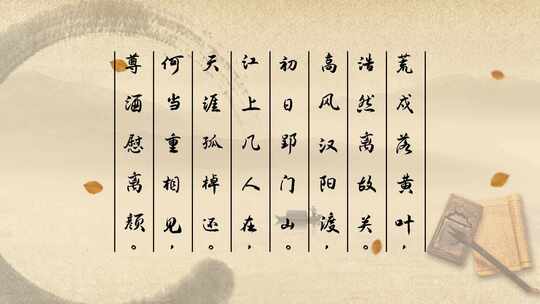 荒戍落黄叶，
浩然离故关。
高风汉阳渡，
初日郢门山。
江上几人在，
天涯孤棹还。
何当重相见，
尊酒慰离颜。